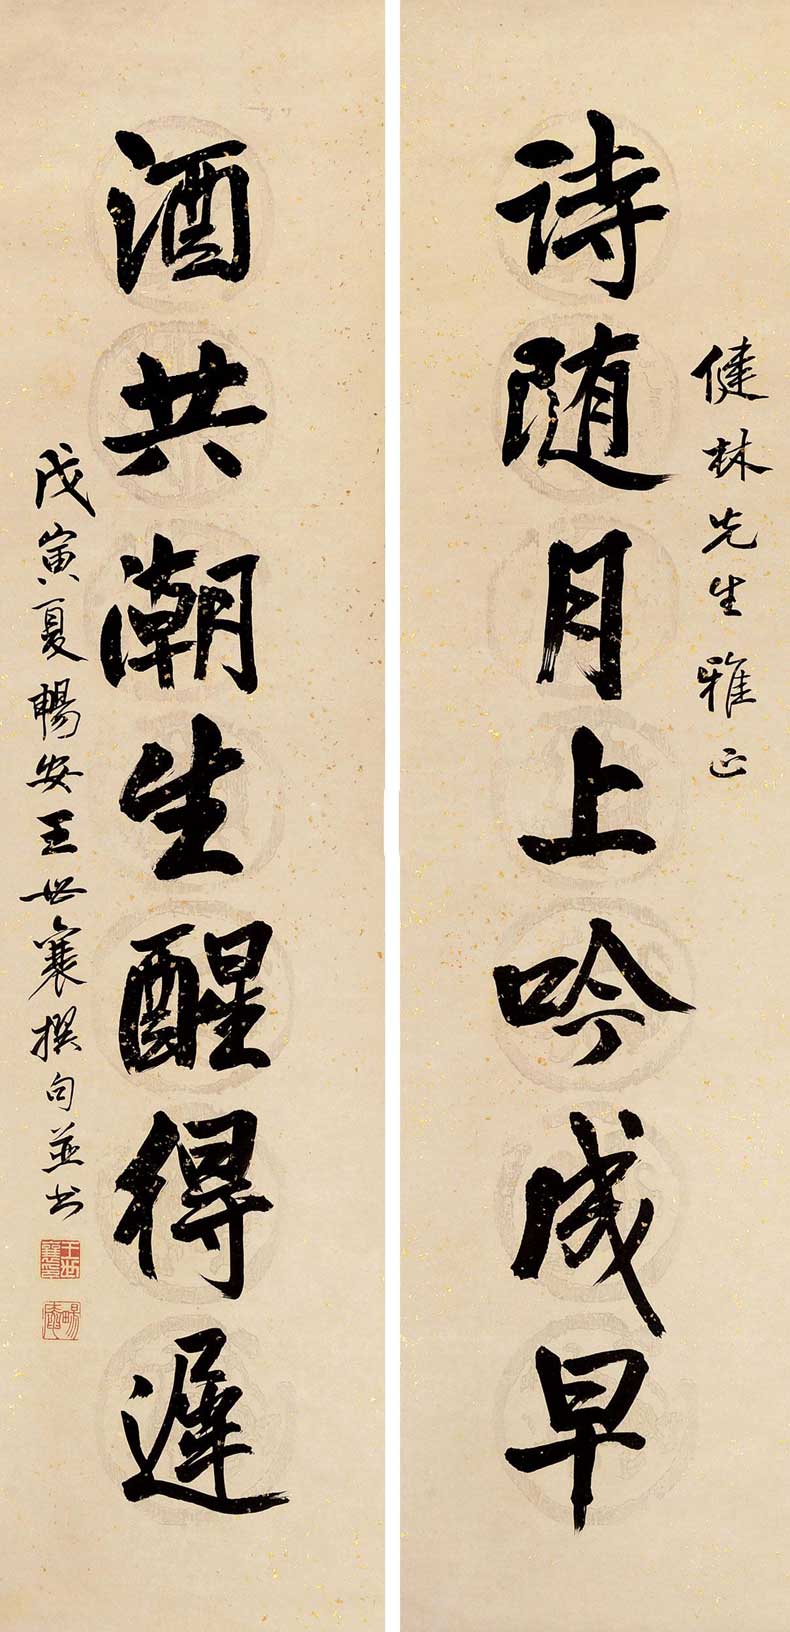 健林先生雅正
诗随月上吟成早
酒共潮生醒得遲
戊寅夏暢安王世襄撰句並书
王世襄印
暢安